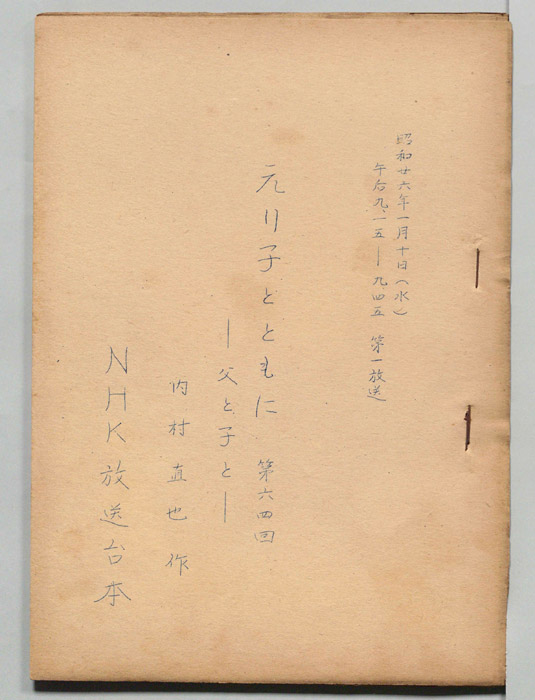 昭和廿六年一月十日(水)
午后九、一五—九、四五 第一放送
えり子とともに 第六四回
—父と子と—
内村直也 作
NHK放送台本